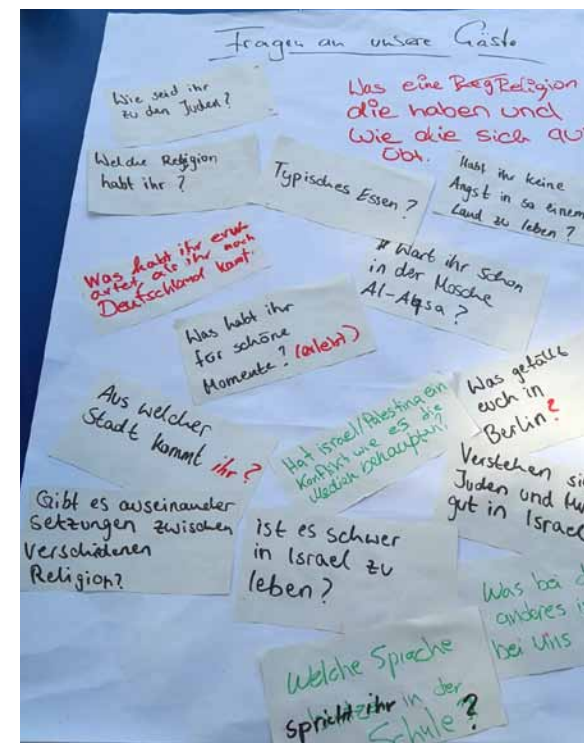 Fragen an unsere Gäste
Wie seid ihr
zu den Juden?
Was eine Religion
die haben und
wie die sich au
Welche Religion
habt ihr?
Typisches Essen?
Habt ihr keine
Angst in so einem
Land zu leben?
Was habt ihr erw
artet, als ihr nach
Deutschland kamt.
Wart ihr schon
in der Mosche
Al-Aqsa?
Was habt ihr
für schöne
Momente? (erlebt)
Was gefällt
euch in
Berlin?
Aus welcher
Stadt kommt ihr?
Hat israel/Palestina ein
Konflikt wie es die
Medien behaupten?
Verstehen si
Juden und Mu
gut in Israel
Gibt es auseinander
setzungen zwischen
verschidenen
Religion?
ist es schwer
in Israel zu
leben?
Was bei
anderes
bei uns
Welche Sprache
spricht ihr in der
Schule?